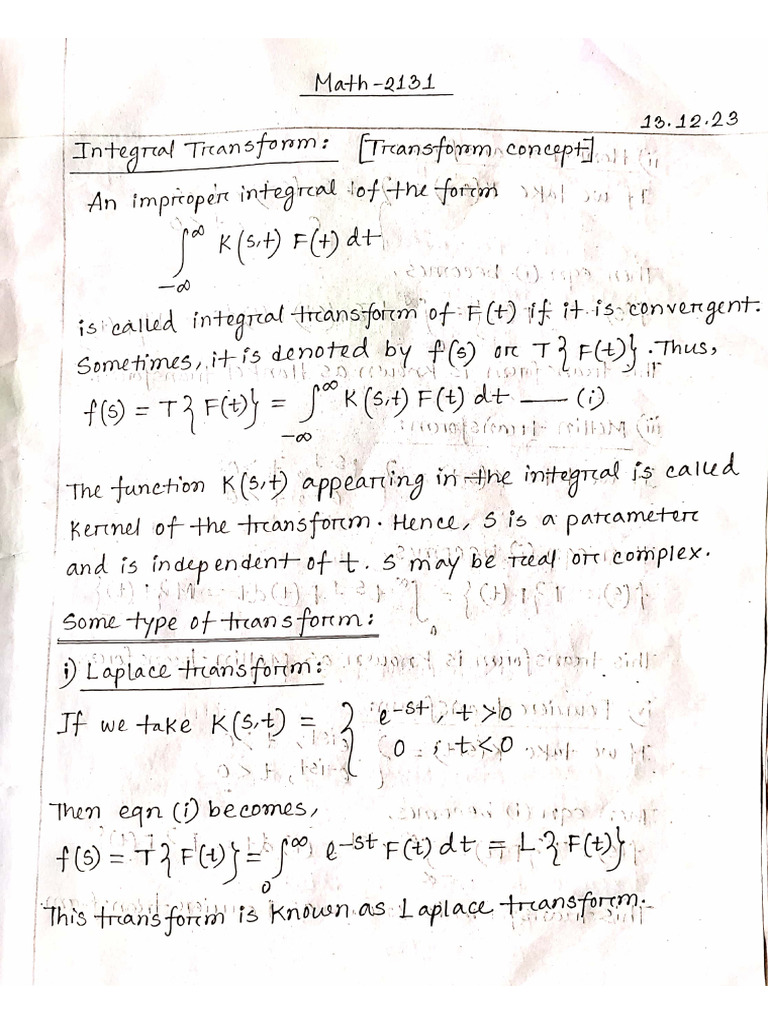 Math-2131
13.12.23
Integral Transform: [Transform concept]
An improper integral of the form
∫_{-∞}^{∞} K(s,t) F(t) dt
is called integral transform of F(t) if it is convergent.
Sometimes, it is denoted by f(s) or T{F(t)}. Thus,
f(s) = T{F(t)} = ∫_{-∞}^{∞} K(s,t) F(t) dt — (i)
The function K(s,t) appearing in the integral is called
Kernel of the transform. Hence, S is a parameter
and is independent of t. S may be real or complex.
Some type of transform:
i) Laplace transform:
If we take K(s,t) = { e^{-st}, t>0
0 ; t<0
Then eqn (i) becomes,
f(s) = T{F(t)} = ∫_{0}^{∞} e^{-st} F(t) dt = L{F(t)}
This transform is known as Laplace transform.